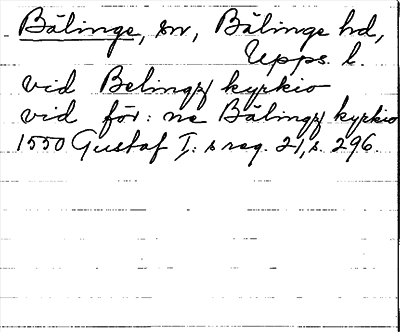 Bälinge, sn, Bälinge hd,
Upps. l.
vid Belingz kyrkio
vid för: ne Bälingz kyrkio
1550 Gustaf I: s reg. 21, s. 296.